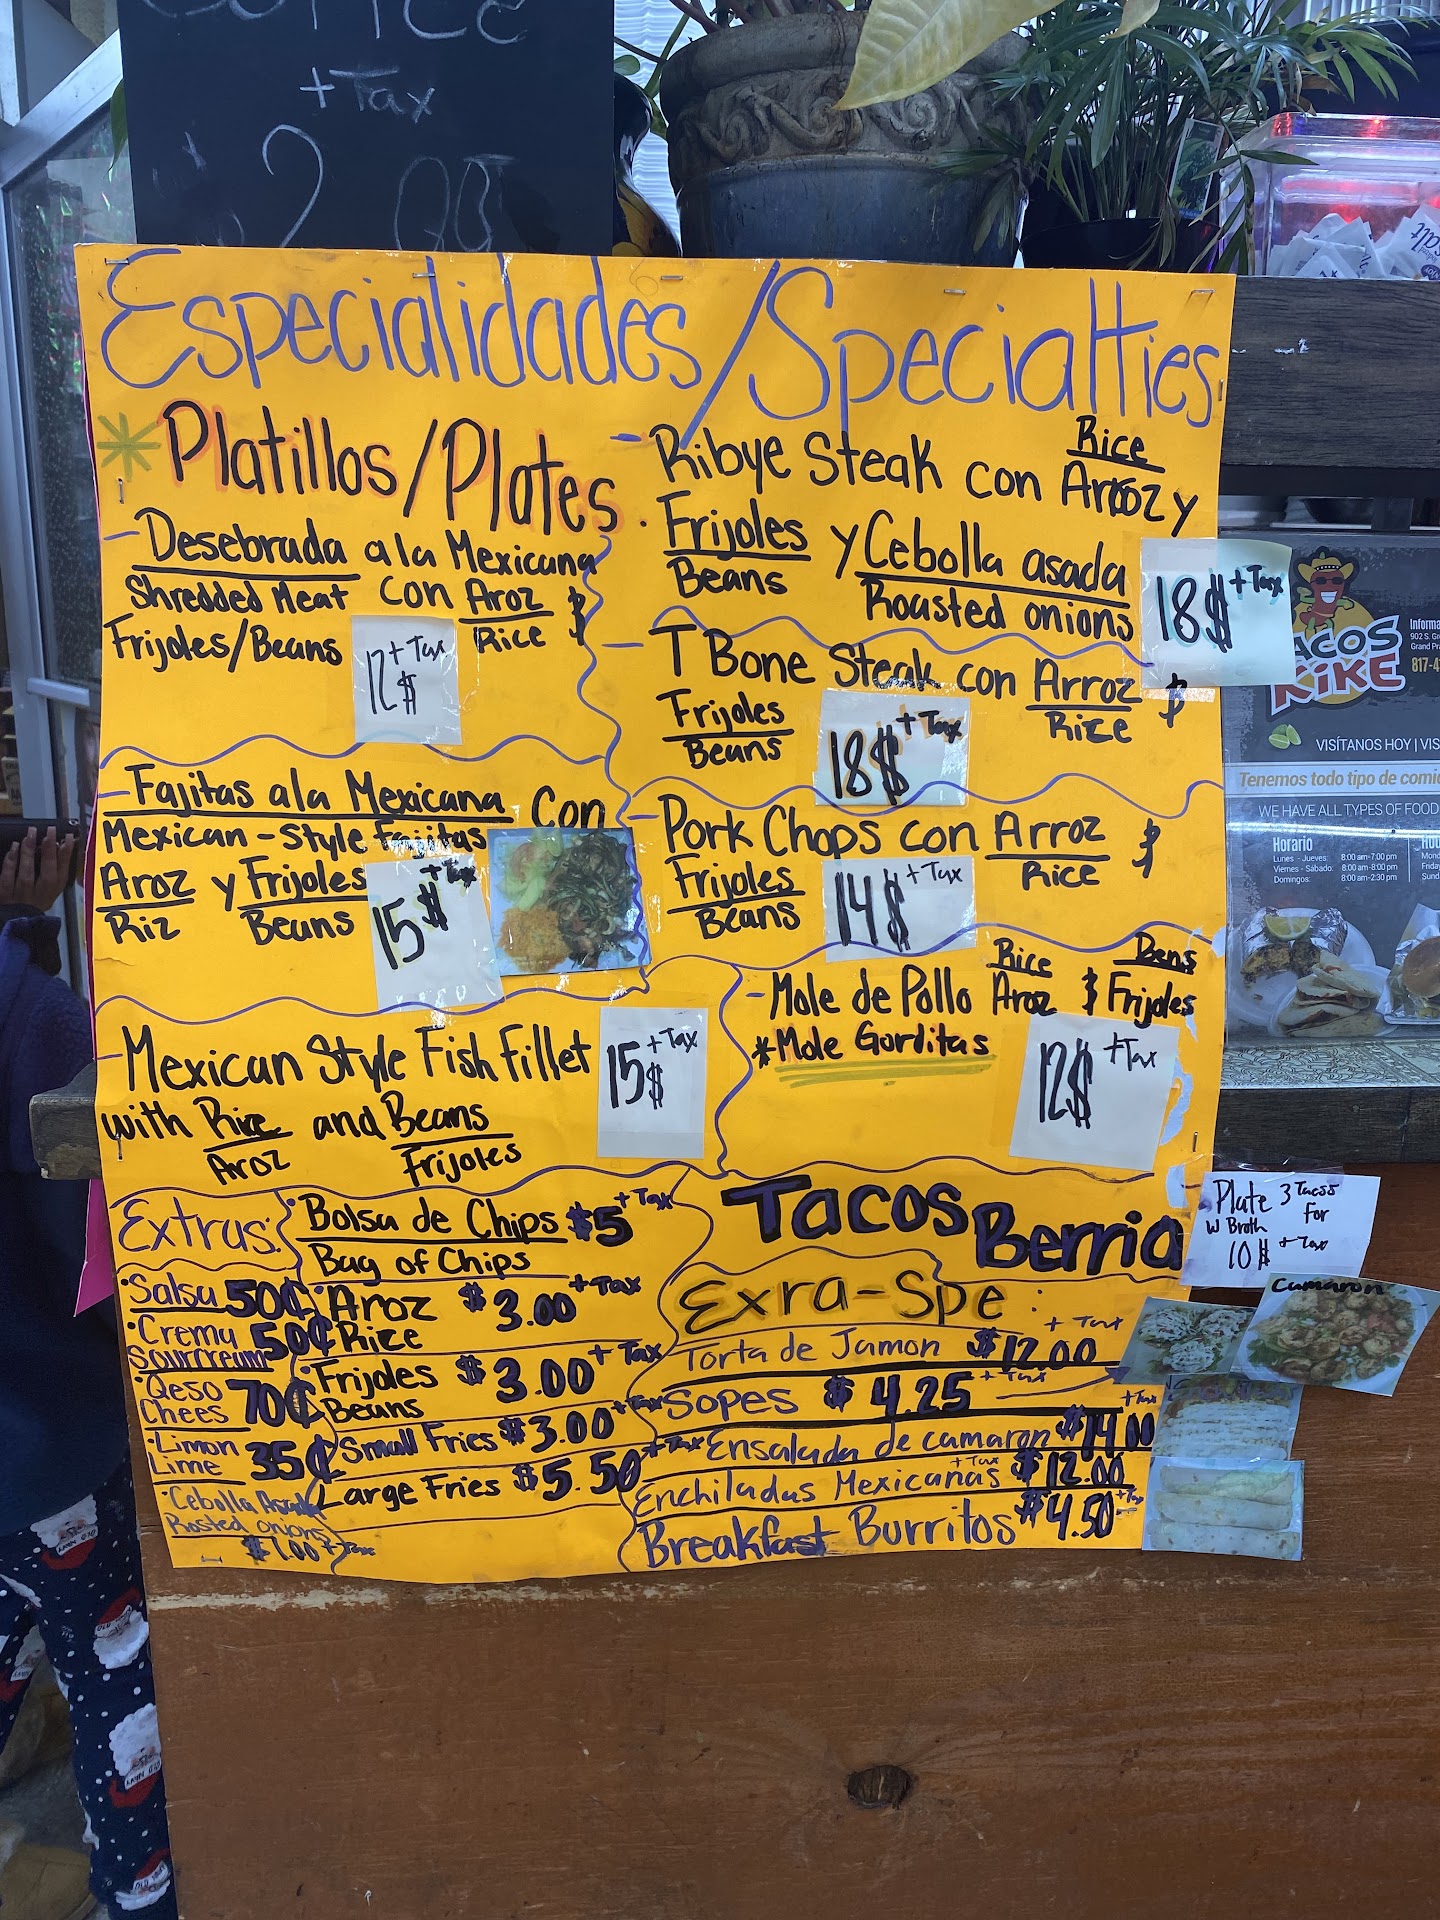 + Tax
2.99
Especialidades/Specialties
*Platillos/Plates.
- Desebrada a la Mexicana
Shredded Meat con Aroz $
Rice
Frijoles/Beans
12$ + Tax
- Fajitas ala Mexicana Con
Mexican-Style Fajitas
Aroz y Frijoles
Riz Beans
15$ + Tax
- Mexican Style Fish Fillet
with Rice and Beans
Aroz Frijoles
15$ + Tax
- Ribye Steak con Arroz y
Rice
Frijoles y Cebolla asada
Beans Roasted onions
18$ + Tax
- T Bone Steak con Arroz $
Frijoles Rice
Beans
18$ + Tax
- Pork Chops con Arroz $
Frijoles Rice
Beans
14$ + Tax
Rice Bens
- Mole de Pollo Aroz $ Frijoles
*Mole Gorditas
12$ + Tax
Extras:
•Salsa 50¢
•Crema 50¢
Sourcream
•Qeso 70¢
Chees
•Limon 35¢
Lime
•Cebolla Asada
Rosted onions
$1.00 + Tax
•Bolsa de Chips $5 + Tax
Bag of Chips
•Aroz $3.00 + Tax
Rice
•Frijoles $3.00 + Tax
Beans
Small Fries $3.00 + Tax
Large Fries $5.50 + Tax
Tacos Berria
Plate 3 Tacos
w Broth For
10$ + Tax
Exra-Spe:
Torta de Jamon $12.00 + Tax
Sopes $4.25 + Tax
Ensalada de camaron $14.00 + Tax
Enchiladas Mexicanas $12.00 + Tax
Breakfast Burritos $4.50 + Tax
Camaron
TACOS
KIKE
Grand Pra
VISÍTANOS HOY | VIS
Tenemos todo tipo de comi
WE HAVE ALL TYPES OF FOOD
Horario
Lunes - Jueves: 8:00 am-7:00 pm
Viernes - Sábado: 8:00 am-8:00 pm
Domingos: 8:00 am-2:30 pm